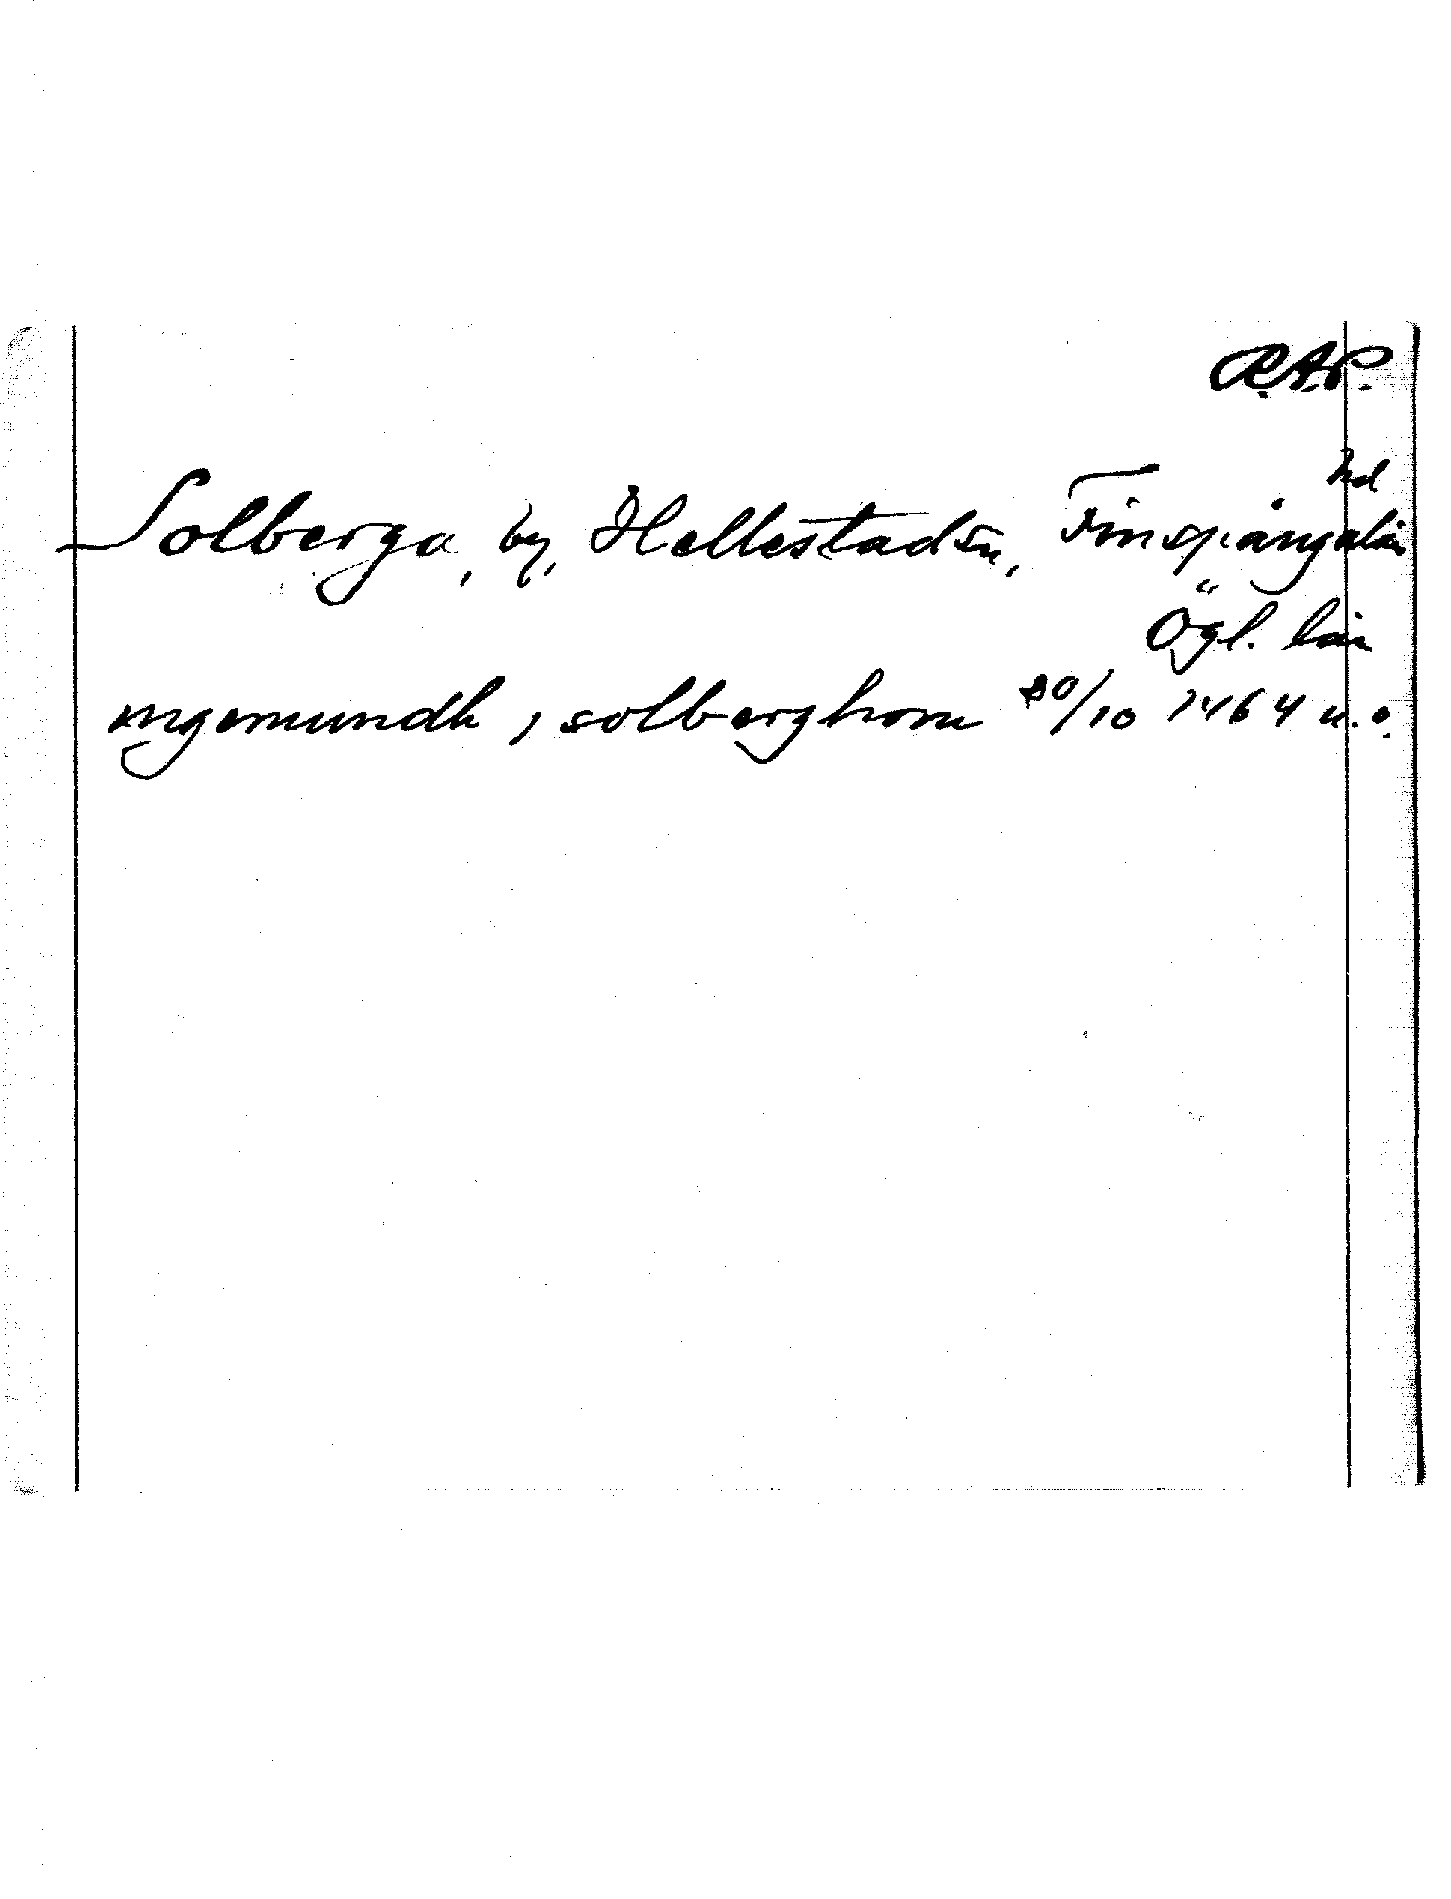 R.A.P.
Solberga, by, Hellestad sn, Finspångalän hd
Ögl. län
yngemundh, solberghom 20/10 1464 u.o.